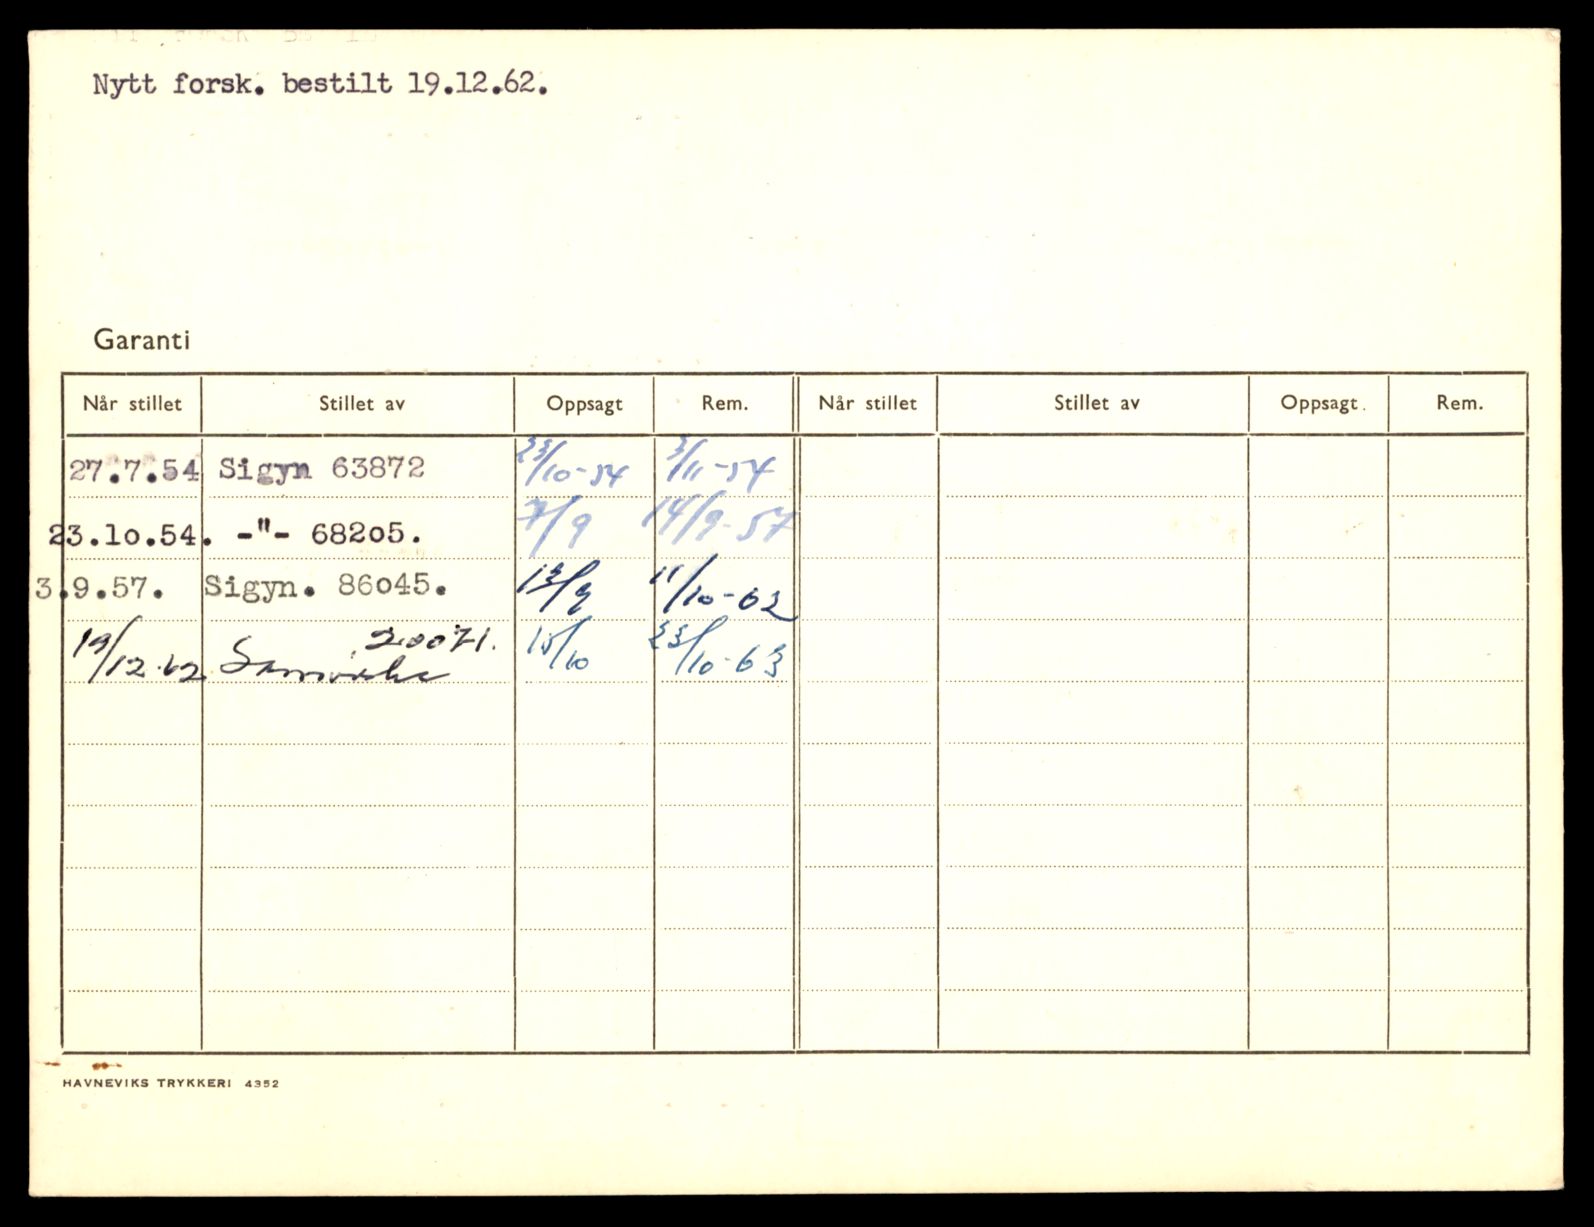 Nytt forsk. bestilt 19.12.62.
Garanti
Når stillet Stillet av Oppsagt Rem. Når stillet Stillet av Oppsagt. Rem.
27.7.54 Sigyn 63872 23/10-54 3/11-54
23.10.54. -"- 68205. 7/9 14/9-57
3.9.57. Sigyn. 86045. 13/9 11/10-62
19/12-62 20071. 15/10 23/10-63
HAVNEVIKS TRYKKERI 4352